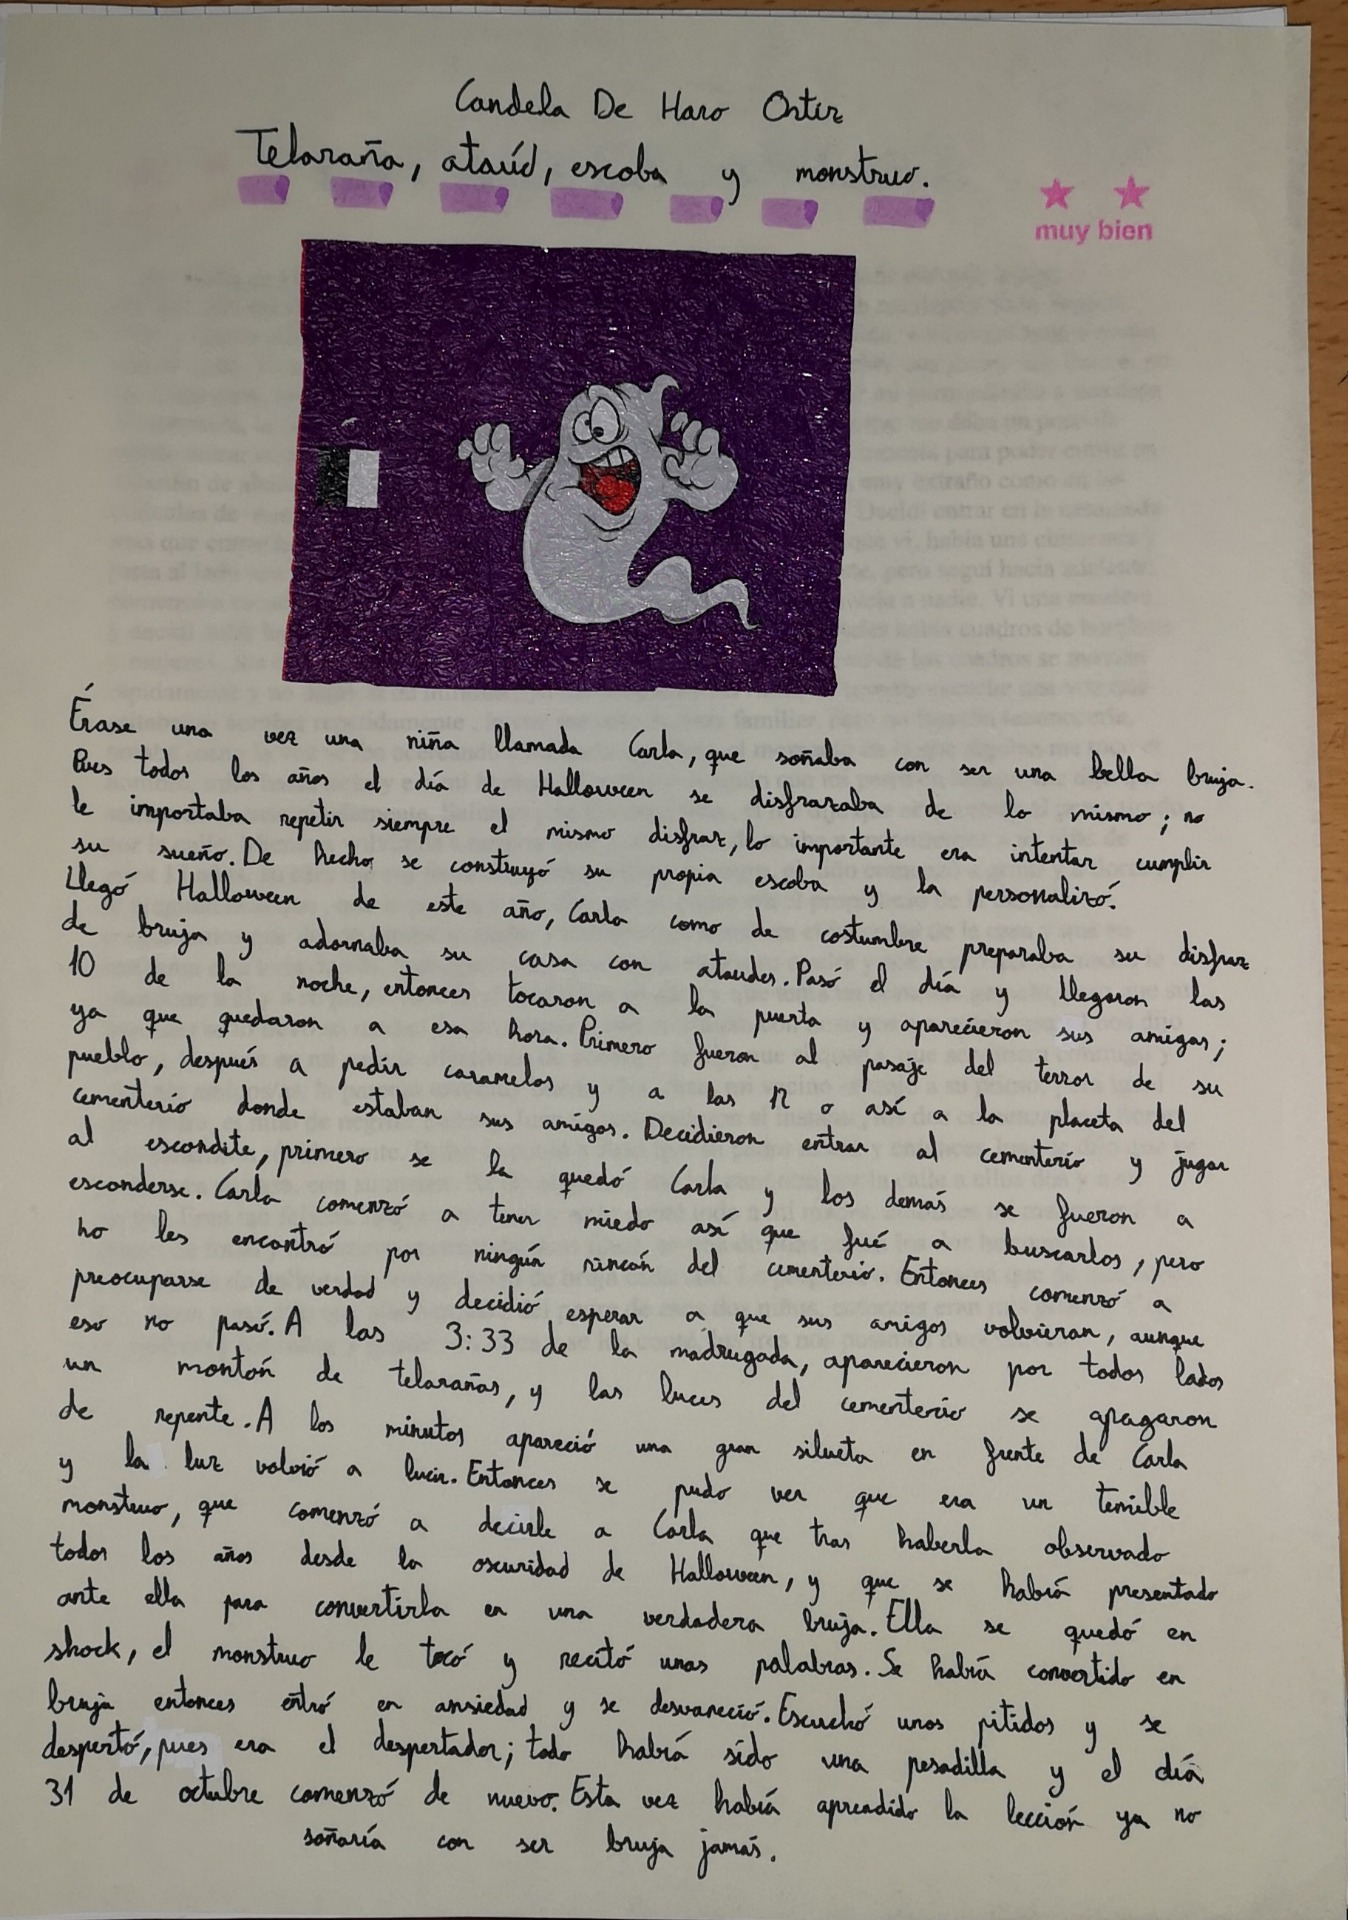 Candela De Haro Ortiz
Telaraña, ataúd, escoba y monstruo.
muy bien
Érase una vez una niña llamada Carla, que soñaba con ser una bella bruja.
Pues todos los años el día de Halloween se disfrazaba de lo mismo; no
le importaba repetir siempre el mismo disfraz, lo importante era intentar cumplir
su sueño. De hecho, se construyó su propia escoba y la personalizó.
Llegó Halloween de este año, Carla como de costumbre preparaba su disfraz
de bruja y adornaba su casa con ataudes. Pasó el día y llegaron las
10 de la noche, entonces tocaron a la puerta y aparecieron sus amigas;
ya que quedaron a esa hora. Primero fueron al pasaje del terror de su
pueblo, después a pedir caramelos y a las 12 o así a la placeta del
cementerio donde estaban sus amigos. Decidieron entrar al cementerio y jugar
al escondite, primero se la quedó Carla y los demás se fueron a
esconderse. Carla comenzó a tener miedo así que fué a buscarlos, pero
no les encontró por ningún rincón del cementerio. Entonces comenzó a
preocuparse de verdad y decidió esperar a que sus amigos volvieran, aunque
eso no pasó. A las 3:33 de la madrugada, aparecieron por todos lados
un montón de telarañas, y las luces del cementerio se apagaron
de repente. A los minutos apareció una gran silueta en frente de Carla
y la luz volvió a lucir. Entonces se pudo ver que era un temible
monstruo, que comenzó a decirle a Carla que tras haberla observado
todos los años desde la oscuridad de Halloween, y que se había presentado
ante ella para convertirla en una verdadera bruja. Ella se quedó en
shock, el monstruo le tocó y recitó unas palabras. Se había convertido en
bruja entonces entró en ansiedad y se desvaneció. Escuchó unos pitidos y se
despertó, pues era el despertador; todo había sido una pesadilla y el día
31 de octubre comenzó de nuevo. Esta vez había aprendido la lección ya no
soñaría con ser bruja jamás.